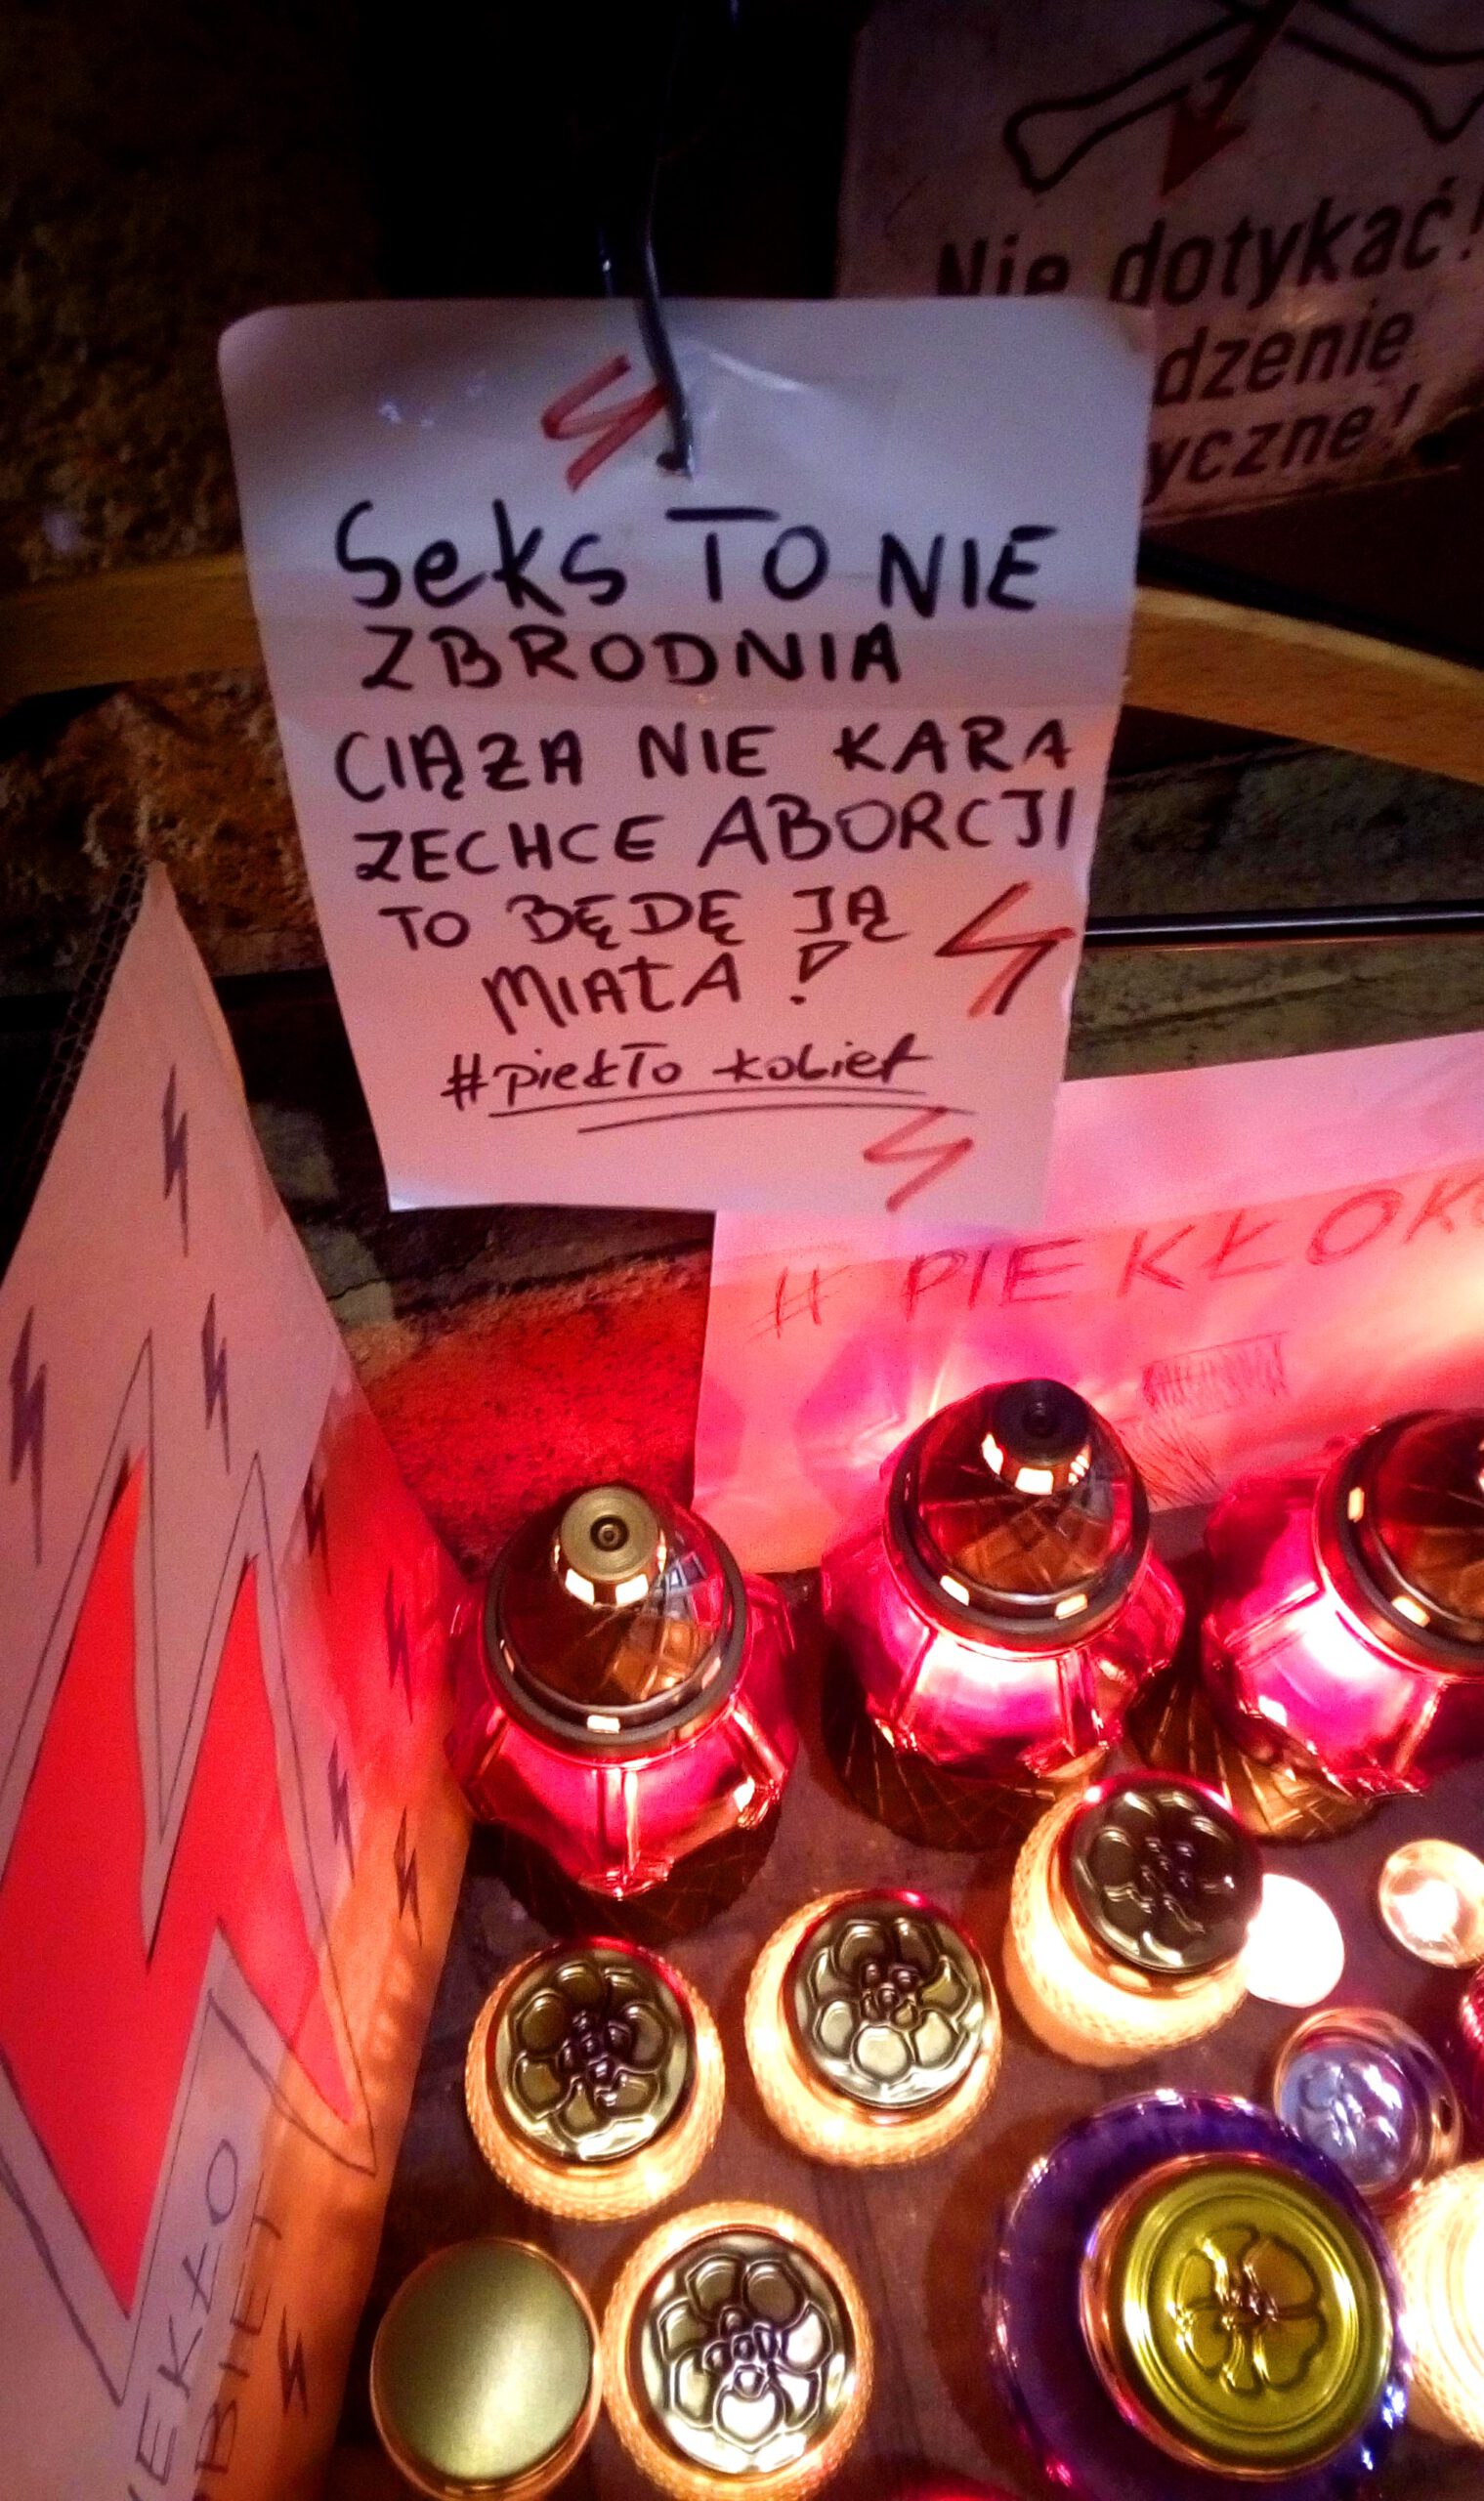 Nie dotykać!
dzenie
yczne!
Seks TO NIE
ZBRODNIA
CIĄŻA NIE KARA
ZECHCE ABORCJI
TO BĘDĘ JĄ
MIAŁA !
#piekło kobiet
# PIEKŁOK
IEKŁO
BIET